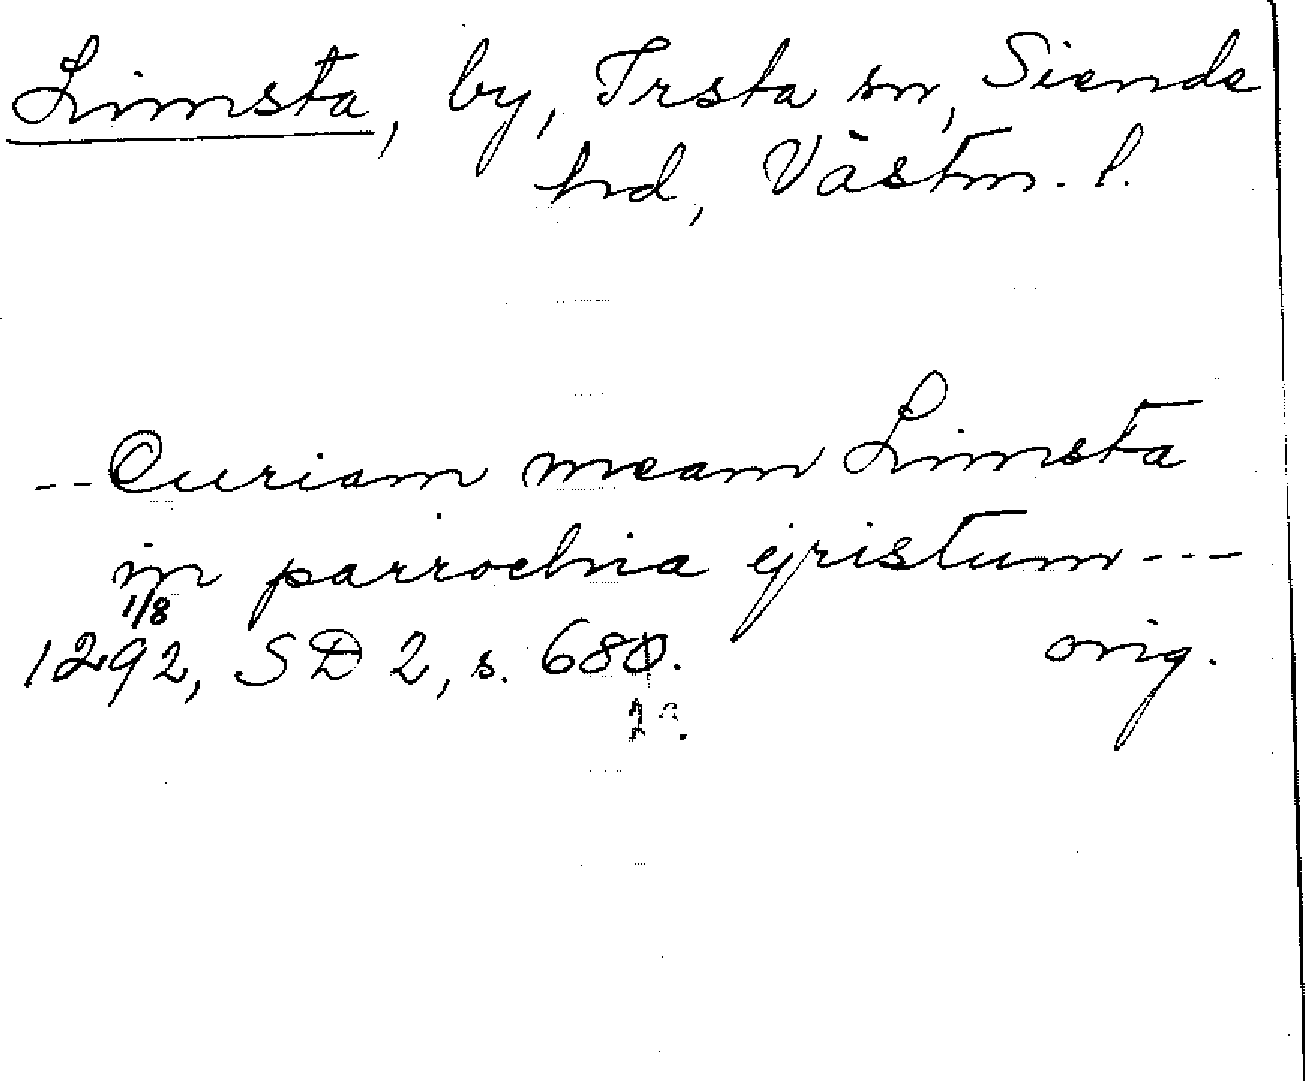 Limsta, by, Irsta sn, Siende
hd, Västm. l.
-- Curiam meam Limsta
in parrochia ijristum ---
1/8
1292, SD 2, s. 680. orig.